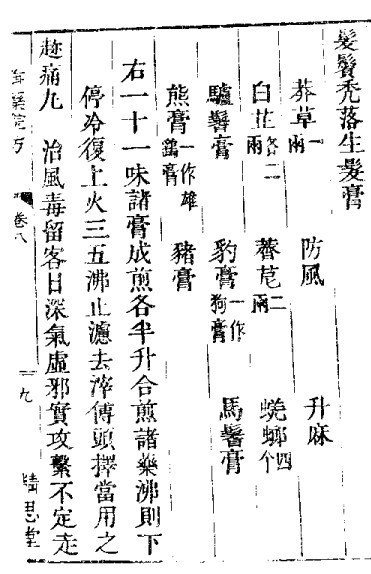 髮鬢禿落生髮膏
莽草一兩 防風 升麻
白芷各二兩 薺苨二兩 蜣蜋四个
驢鬐膏 豹膏一作狗膏 馬鬐膏
熊膏一作雄鷄膏 豬膏
右一十一味諸膏成煎各半升合煎諸藥沸則下
停冷復上火三五沸止濾去滓傅頭擇當用之
趂痛丸 治風毒留客日深氣虛邪實攻繫不定走
藥院方 卷八 九 精思堂